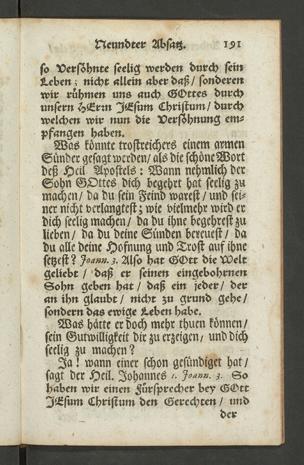 Neundter Absatz. 191
so Versöhnte seelig werden durch sein
Leben; nicht allein aber daß / sonderen
wir rühmen uns auch GOttes durch
unsern HErrn JEsum Christum / durch
welchen wir nun die Versöhnung em-
pfangen haben.
Was könnte trostreichers einem armen
Sünder gesagt werden / als die schöne Wort
deß Heil. Apostels: Wann nemlich der
Sohn GOttes dich begehrt hat seelig zu
machen / da du sein Feind warest / und sei-
ner nicht verlangtest; wie vielmehr wird er
dich seelig machen / da du ihne begehrest zu
lieben / da du deine Sünden bereuest / da
du alle deine Hofnung und Trost auf ihne
setzest? Joann. 3. Also hat GOtt die Welt
geliebt / daß er seinen eingebohrnen
Sohn geben hat / daß ein jeder / der
an ihn glaubt / nicht zu grund gehe /
sondern das ewige Leben habe.
Was hätte er doch mehr thuen können /
sein Gutwilligkeit dir zu erzeigen / und dich
seelig zu machen?
Ja! wann einer schon gesündiget hat /
sagt der Heil. Johannes 1. Joann. 3. So
haben wir einen Fürsprecher bey GOtt
JEsum Christum den Gerechten / und
der